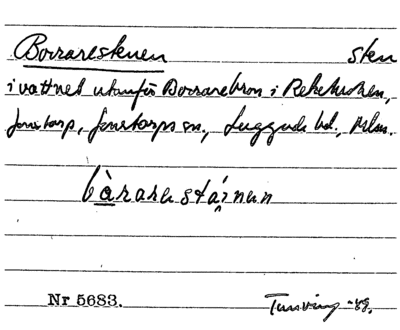 Borrarestenen sten
i vattnet utanför Borrarebron i Rekekroken,
Jonstorp, Jonstorps sn., Luggude hd., Mlm.
bàrarestá̤i̯nen
Nr 5683. Tunving -89.